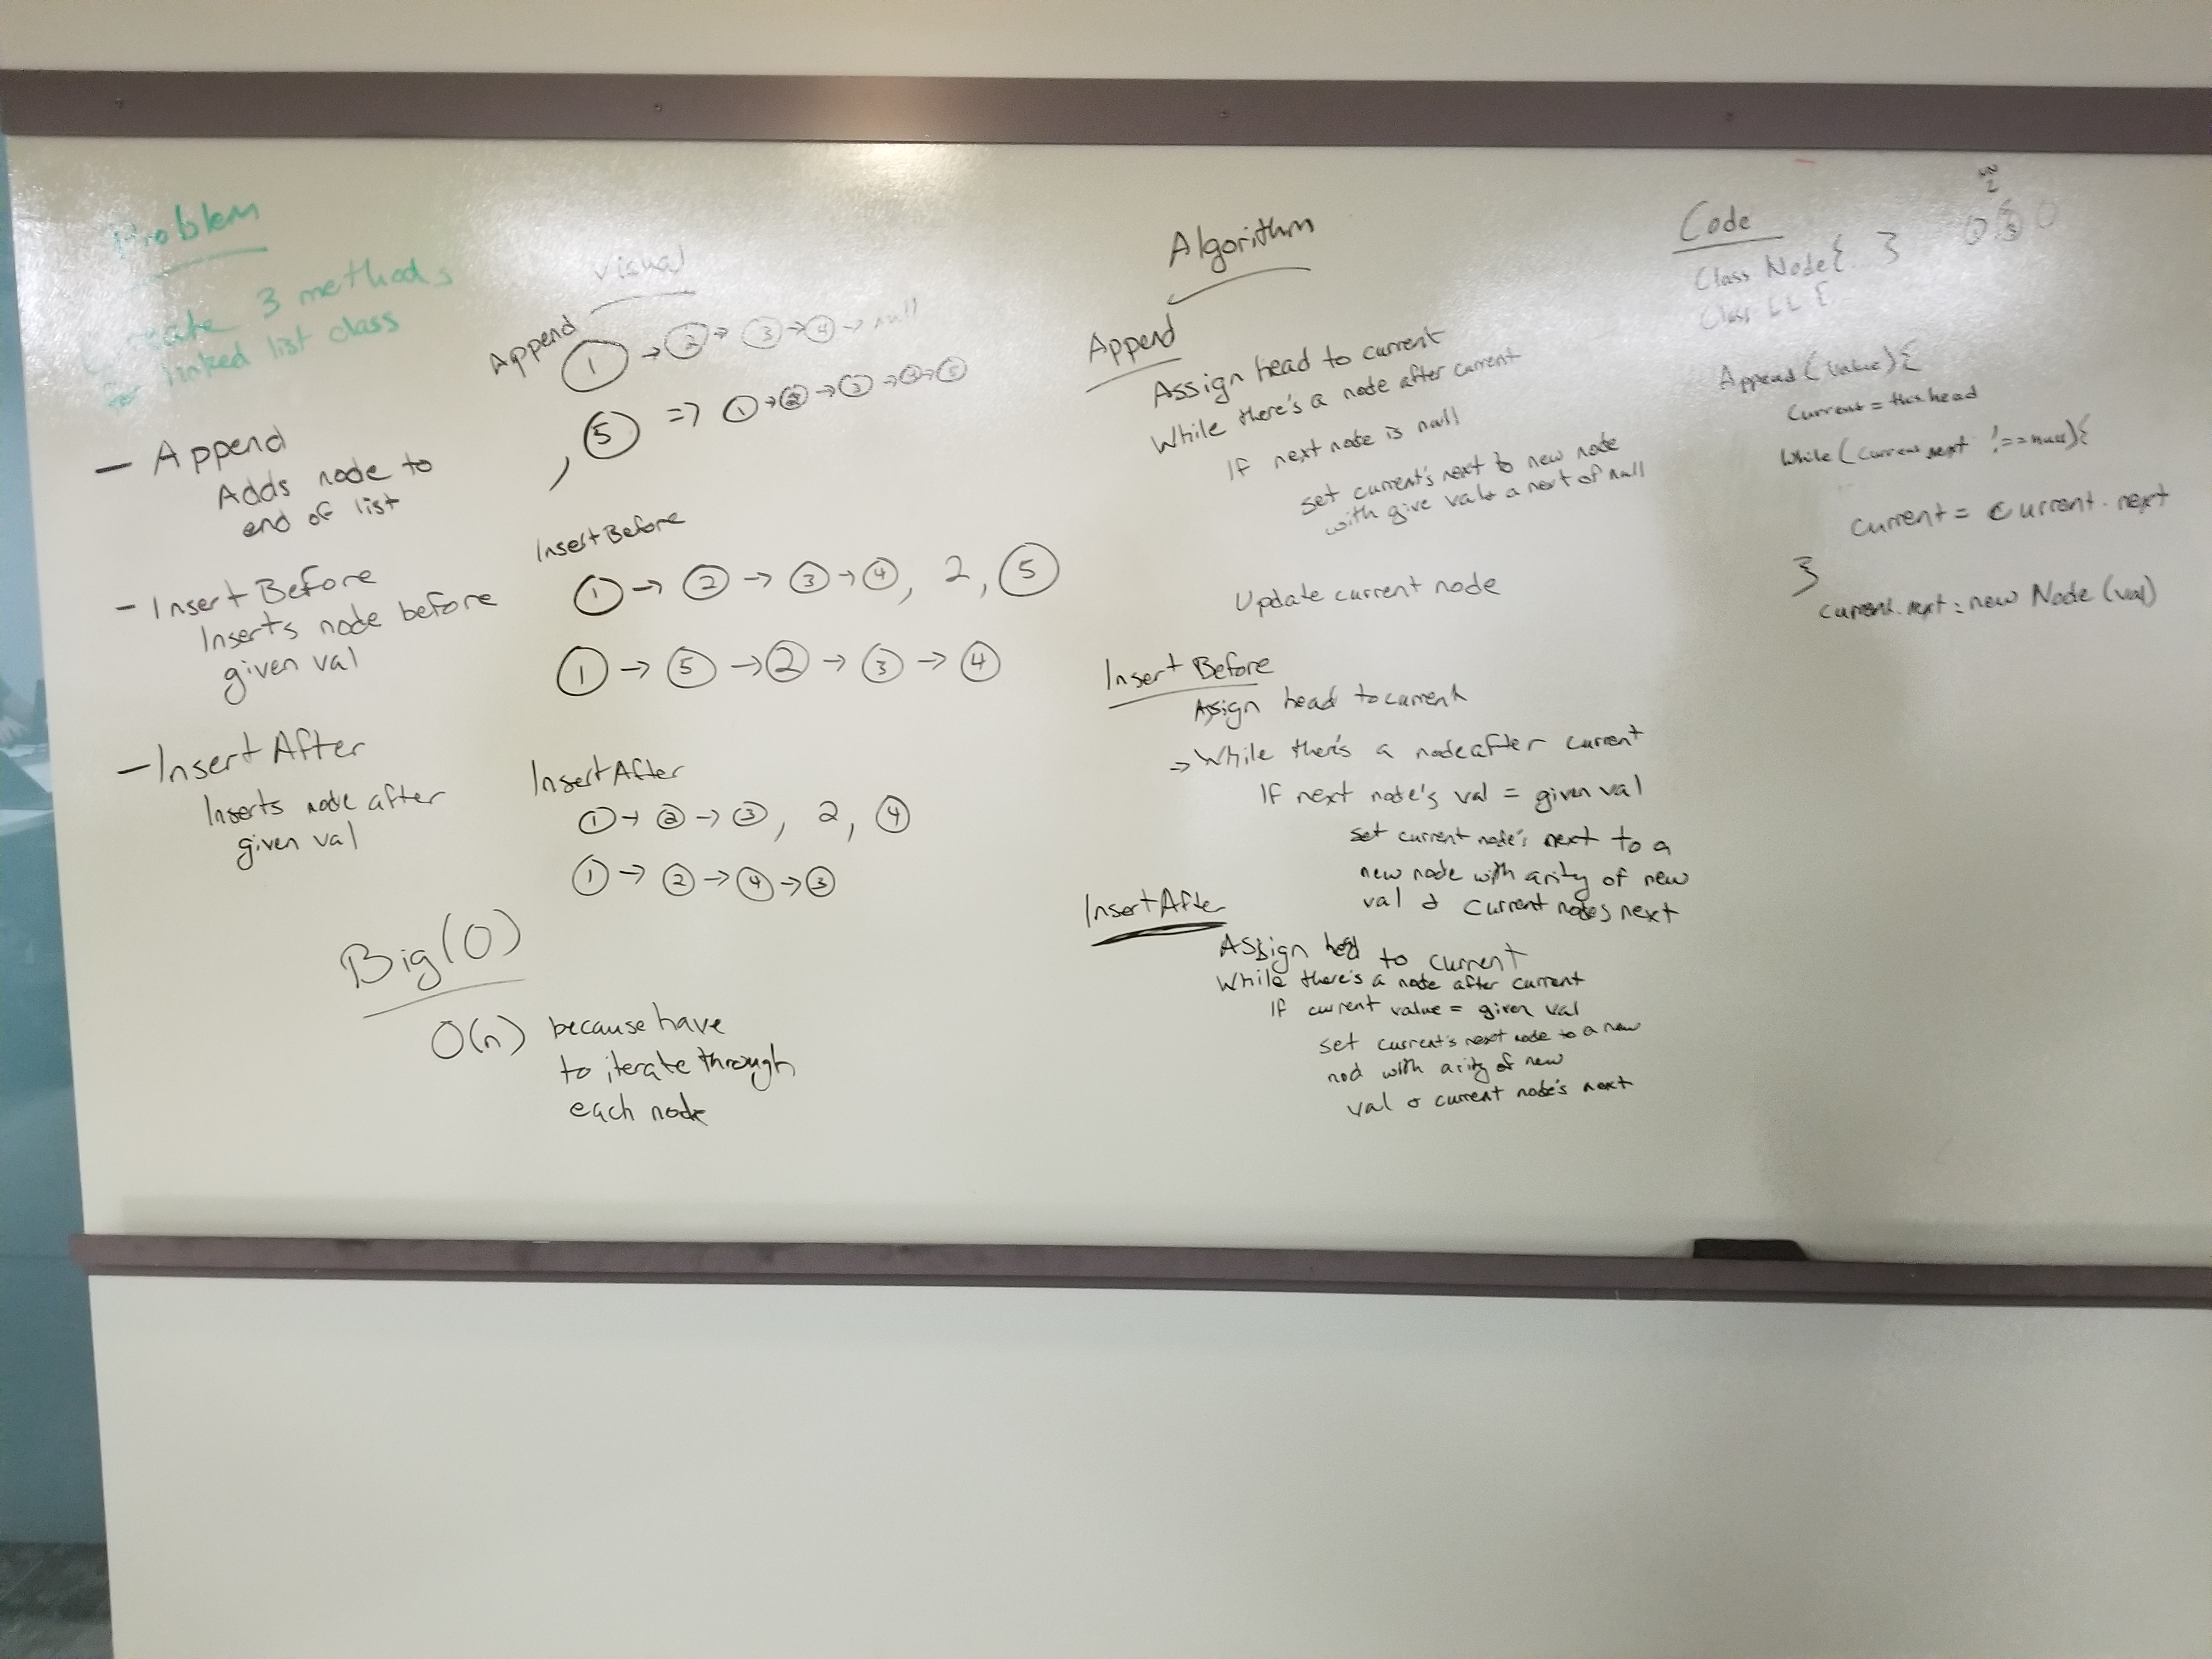 Problem
Create 3 methods
for linked list class
- Append
Adds node to
end of list
- Insert Before
Inserts node before
given val
- Insert After
Inserts node after
given val
Big(O)
O(n) because have
to iterate through
each node
Visual
Append
1 → 2 → 3 → 4 → null
, 5 => 1 → 2 → 3 → 4 → 5
InsertBefore
1 → 2 → 3 → 4, 2, 5
1 → 5 → 2 → 3 → 4
InsertAfter
1 → 2 → 3, 2, 4
1 → 2 → 4 → 3
Algorithm
Append
Assign head to current
While there's a node after current
If next node is null
set current's next to new node
with give val & a next of null
Update current node
Insert Before
Assign head to current
→ While there's a node after current
If next node's val = given val
set current node's next to a
new node with arity of new
val & current nodes next
InsertAfter
Assign head to current
While there's a node after current
If current value = given val
set current's next node to a new
nod with arity of new
val & current node's next
Code
Class Node{ }
Class LL {
Append (value) {
Current = this.head
While (current.next !== null) {
current = current.next
}
current.next = new Node (val)